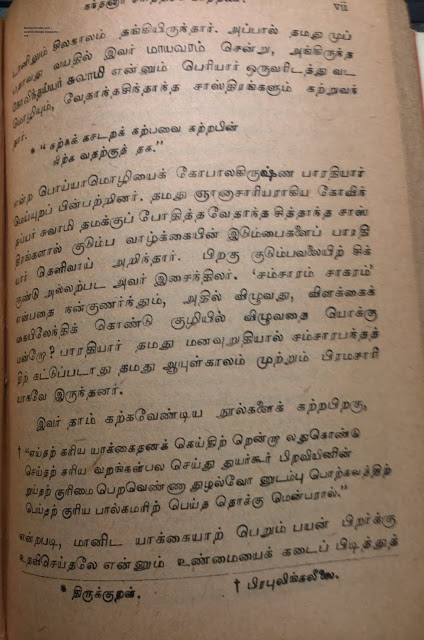 vii
டீனிலும் சிலகாலம் தங்கியிருந்தார். அப்பால் தமது முப்
பதாவது வயதில் இவர் மாயவரம் சென்று, அங்கிருந்த
கோவிந்தய்யர் சுவாமி என்னும் பெரியார் ஒருவரிடத்து வட
மொழியும், வேதாந்தசித்தாந்த சாஸ்திரங்களும் கற்றுவந்
தார்.
* "கற்கக் கசடறக் கற்பவை கற்றபின்
நிற்க வதற்குத் தக."
என்ற பொய்யாமொழியைக் கோபாலகிருஷ்ண பாரதியார்
மெய்யுறப் பின்பற்றினர். தமது ஞானாசாரியராகிய கோவிந்
தய்யர் சுவாமி தமக்குப் போதித்த வேதாந்த சித்தாந்த சாஸ்
திரங்களால் குடும்ப வாழ்க்கையின் இடும்பைகளைப் பாரதி
யார் தெளிவாய் அறிந்தார். பிறகு குடும்பவலையிற் சிக்
குண்டு அல்லற்பட அவர் இசைந்திலர். 'சம்சாரம் சாகரம்'
என்பதை நன்குணர்ந்தும், அதில் விழுவது, விளக்கைக்
கையிலேந்திக் கொண்டு குழியில் விழுவதை யொக்கு
மன்றோ? பாரதியார் தமது மனவுறுதியால் சம்சாரபந்தத்
திற் கட்டுப்படாது தமது ஆயுள்காலம் முற்றும் பிரமசாரி
யாகவே இருந்தனர்.
இவர் தாம் கற்கவேண்டிய நூல்களைக் கற்றபிறகு,
† "எய்தற் கரிய யாக்கைதனக் கெய்திற் றென்று லதுகொண்டு
செய்தற் கரிய வறங்கள்பல செய்து துயர்கூர் பிறவியினின்
றுய்தற் குரிமை பெறவெண்ணா துழல்வோ னுடம்பு பொற்கலத்திற்
பெய்தற் குரிய பால்கமரிற் பெய்த தொக்கு மென்பரால்."
என்றபடி, மானிட யாக்கையாற் பெறும் பயன் பிறர்க்கு
உதவிசெய்தலே என்னும் உண்மையைக் கடைப் பிடித்துத்
* திருக்குறள். † பிரபுலிங்கலீலை.